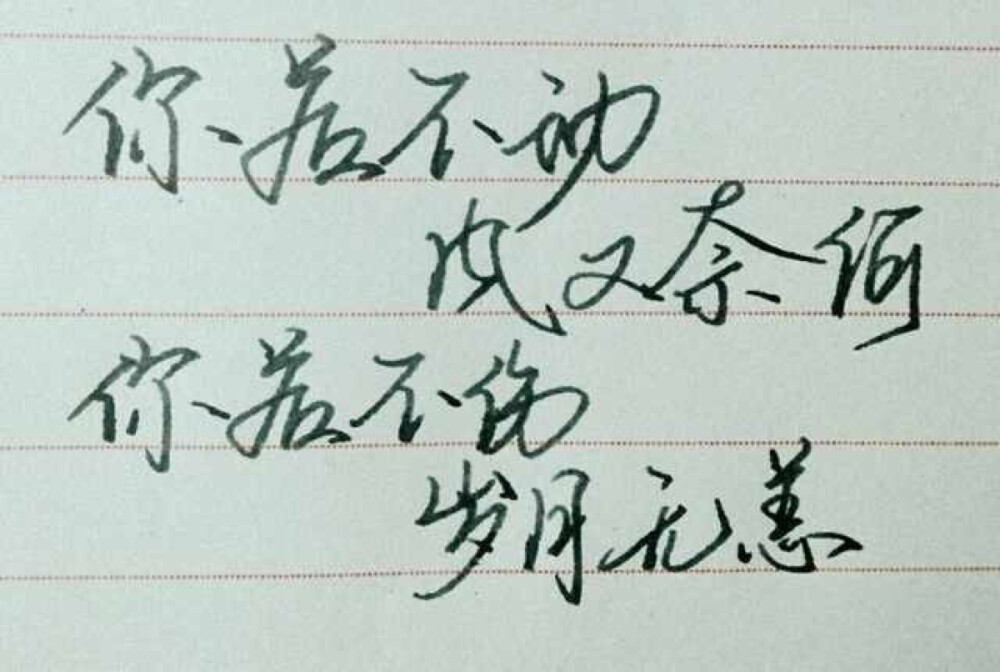 你若不动
风又奈何
你若不伤
岁月无恙